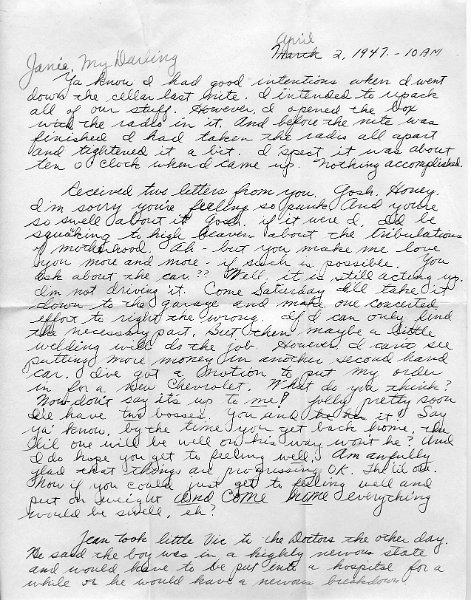 April
March 2, 1947. - 10 AM
Janie, My Darling
Ya know I had good intentions when I went
down the cellar last nite. I intended to repack
all of our stuff. However I opened the box
with the radio in it. And before the nite was
finished I had taken the radio all apart
and tightened it a bit. I spect it was about
ten o clock when I came up. Nothing accomplished.
Received two letters from you. Gosh. Honey.
I'm sorry you're feeling so punk. And you're
so swell about it. Gosh, if it were I, I'd be
squaking to high heaven about the tribulations
of motherhood. Ah - but you make me love
you more and more - if such is possible. You
ask about the car?? Well, it is still acting up.
I'm not driving it. Come Saturday I'll take it
down to the garage and make one concerted
effort to right the wrong. If I can only find
the necessary part. But then maybe a little
welding will do the job. However I can't see
putting more money in another second hand
car. I've got a notion to put my order
in for a new Chevrolet. What do you think?
Now don't say it's up to me! Golly pretty soon
I'll have two bosses. You and it? Say
Ya' know, by the time you get back home, the
li'l one will be well on his way won't he? And
I do hope you get to feeling well. Am awfully
glad that things are progressing OK.
Now if you could just get to feeling well and
put on weight and come home everything
would be swell, eh?
Jean took little Vic to the Doctors the other day.
He said the boy was in a highly nervous state
and would have to be put into a hospital for a
while or he would have a nervous breakdown